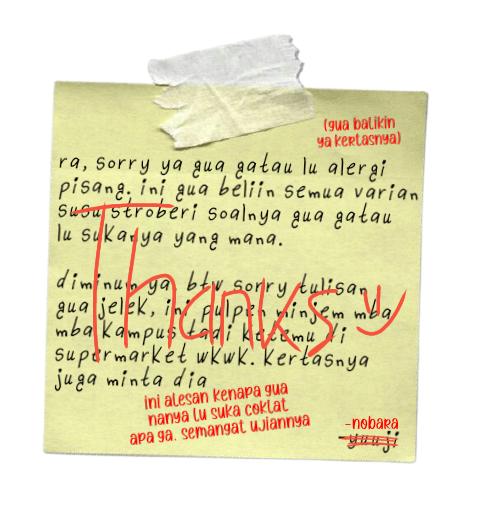 (gua balikin
ya kertasnya)
ra, sorry ya gua gatau lu alergi
pisang. ini gua beliin semua varian
susu stroberi soalnya gua gatau
lu sukanya yang mana.
Thanks
diminum ya btw sorry tulisan
gua jelek, ini pulpen minjem mba
mba kampus tadi ketemu di
supermarket wkwk. kertasnya
juga minta dia
ini alesan kenapa gua
nanya lu suka coklat
apa ga. semangat ujiannya
-nobara
-yuuji